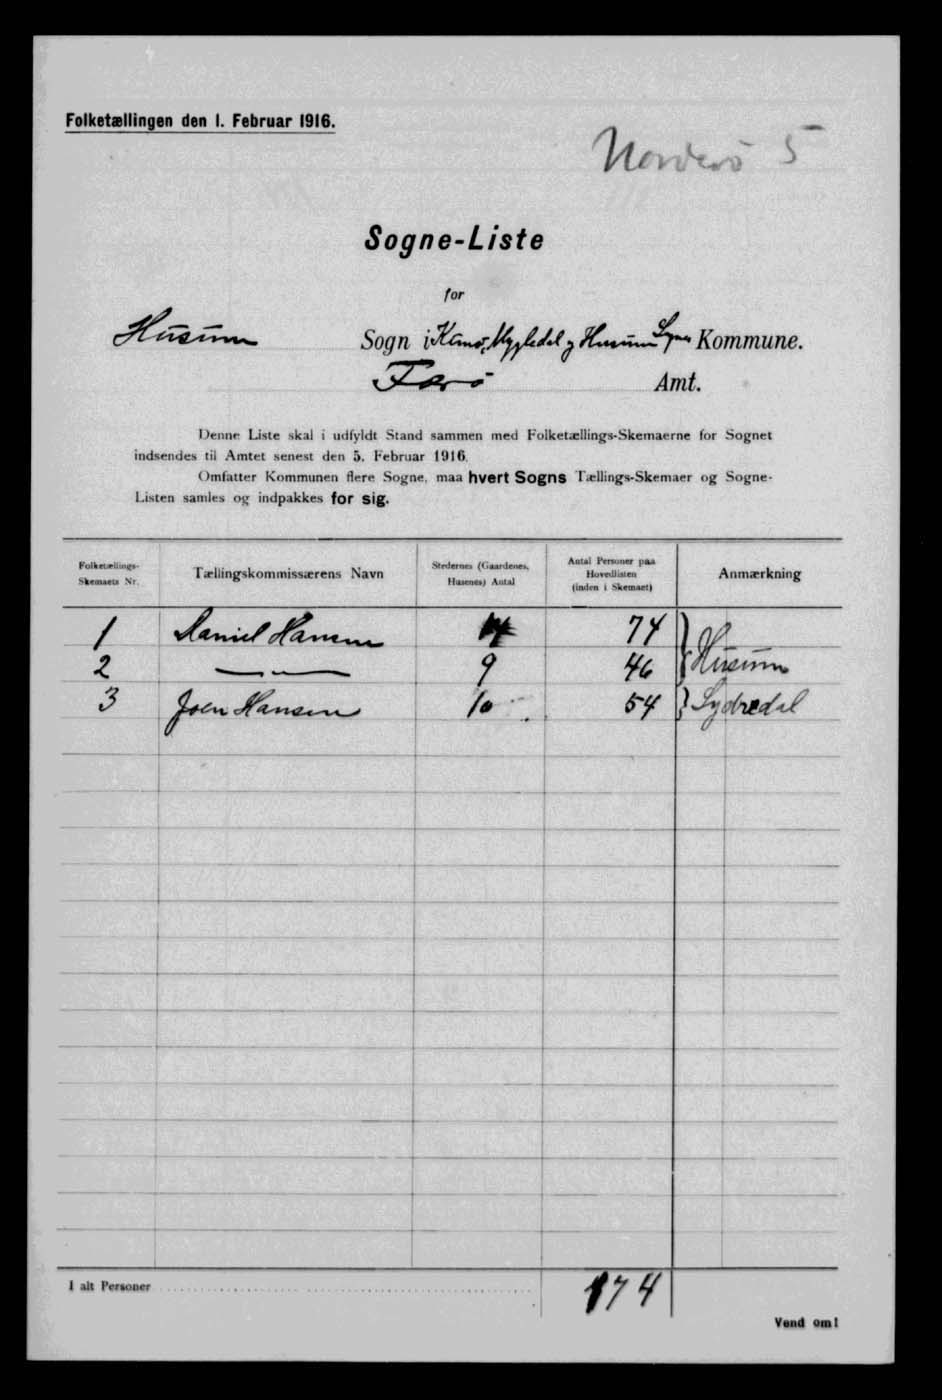 Folketællingen den 1. Februar 1916.
Norderø 5
Sogne-Liste
for
Husum Sogn i Kunø, Mygledal og Husum Sognes Kommune.
Færø Amt.
Denne Liste skal i udfyldt Stand sammen med Folketællings-Skemaerne for Sognet
indsendes til Amtet senest den 5. Februar 1916.
Omfatter Kommunen flere Sogne, maa hvert Sogns Tællings-Skemaer og Sogne-
Listen samles og indpakkes for sig.
Folketællings-
Skemaets Nr.
Tællingskommissærens Navn
Stedernes (Gaardenes,
Husenes) Antal
Antal Personer paa
Hovedlisten
(inden i Skemaet)
Anmærkning
1 Daniel Hansen 14 74
2 — " — 9 46 } Husum
3 Joen Hansen 10 54 } Sydredal
I alt Personer 174
Vend om!